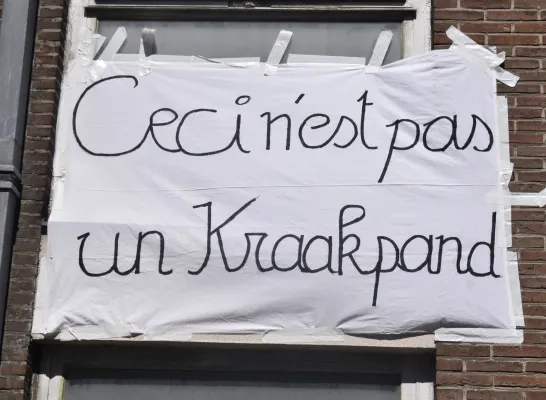 Ceci n'est pas
un Kraakpand